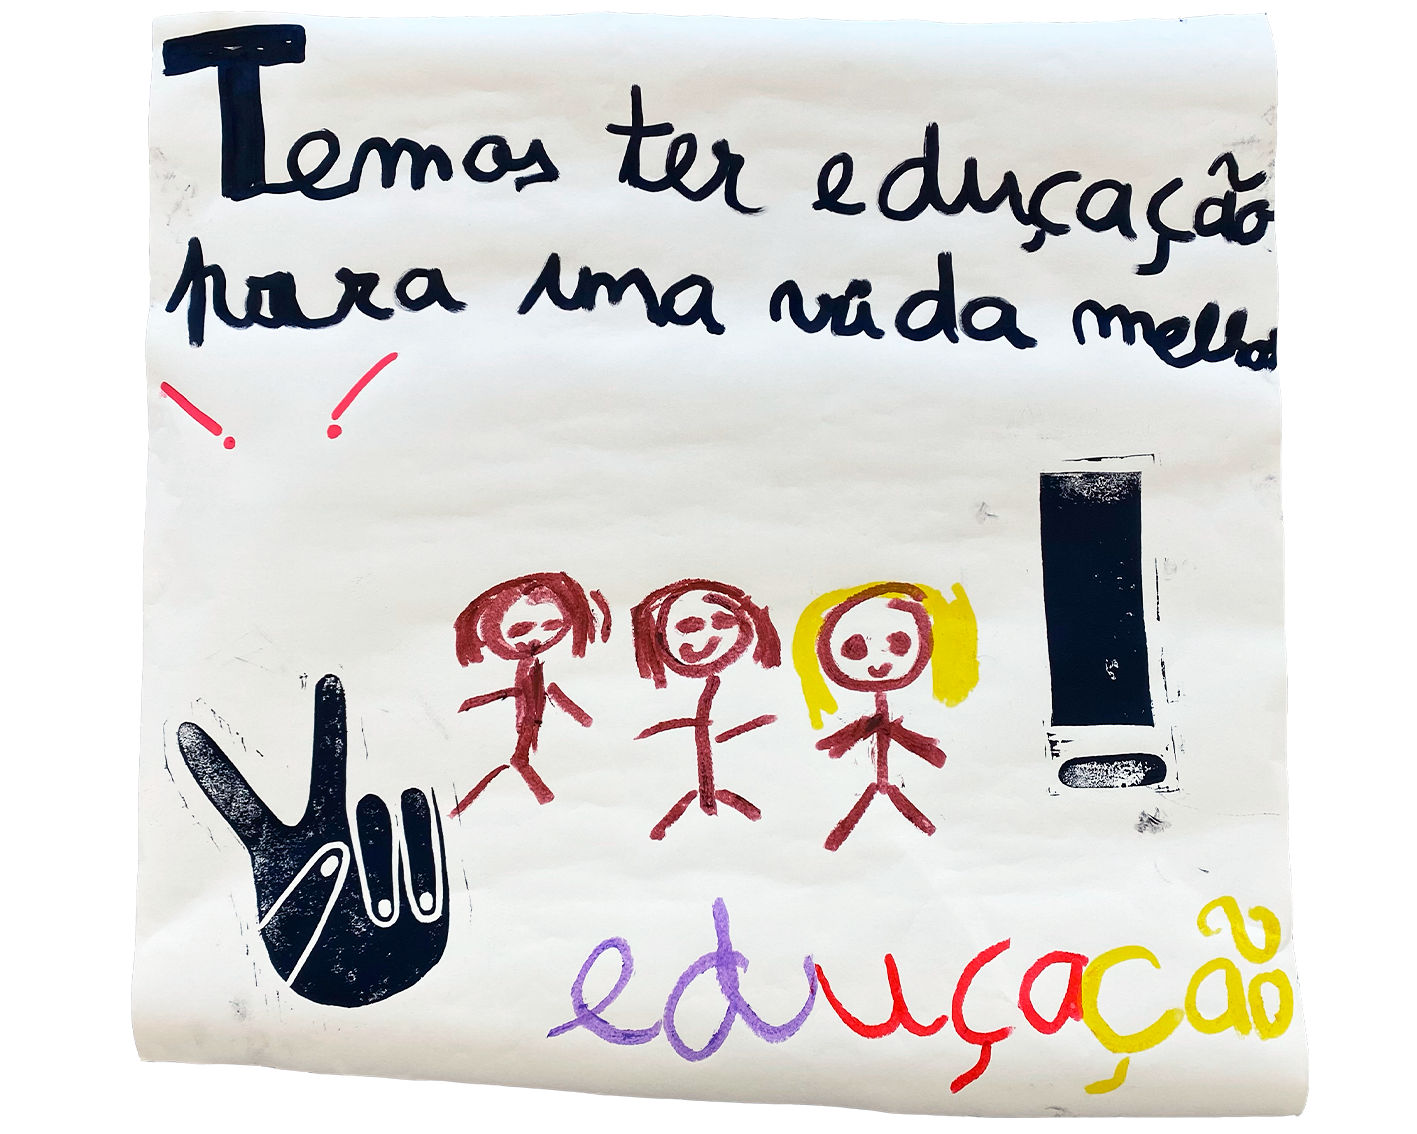 Temos ter eduçação
para uma vida melhor
! !
!
eduçação